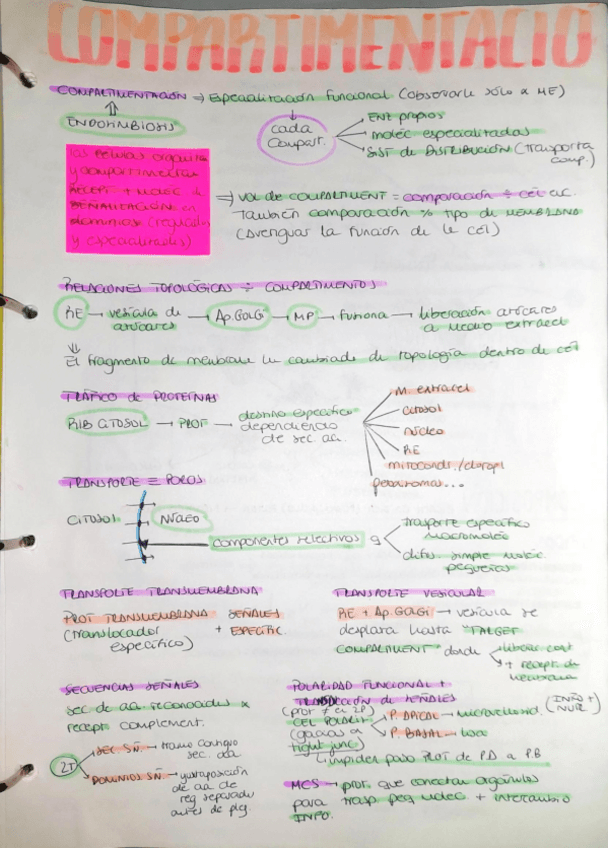 COMPARTIMENTACIO
COMPARTIMENTACIÓN → Especialización Funcional (Observarle sólo a ME)
ENDOSIMBIOSIS
cada
compart.
ENZ propios
molec especializadas
SIST de DISTRIBUCIÓN (transporta
comp.)
las células organiza
y compartimentan
RECEPT + molec de
SEÑALIZACIÓN en
dominios (regulados
y especializados)
⇒ Vol de COMPARTIMENT = comparación ÷ cél euc.
También comparación % tipo de MEMBRANA
(averiguar la función de la cél)
RELACIONES TOPOLÓGICAS ÷ COMPARTIMENTOS
RE → vesícula de
azúcares
→ Ap. GOLGI → MP → Fusiona → liberación azúcares
a Medio extracel
El fragmento de membrana ha cambiado de topología dentro de cél
TRÁFICO de PROTEÍNAS
RIB CITOSOL → PROT → destino específico
dependiendo
de sec. aa.
M. extracel
Citosol
Núcleo
RE
mitocondr./cloropl
peroxisomas...
TRANSPORTE ≡ POROS
CITOSOL NÚCLEO
componentes selectivos
trasporte específico
macromoléc
difus. simple moléc
pequeñas
TRANSPORTE TRANSMEMBRANA
PROT TRANSMEMBRANA + SEÑALES
(translocador ESPECÍFIC.
específico)
TRANSPORTE VESICULAR
RE + Ap. GOLGI → vesícula se
desplaza hasta "TARGET
COMPARTMENT" donde
liberar cont
+ recept. de
membrana
SECUENCIAS SEÑALES
sec de aa reconocidas x
recept complement.
2T
SEC. SÑ. → tramo contiguo
sec. aa
DOMINIOS SÑ. → yuxtaposición
de aa de
reg separados
antes de plg
POLARIDAD FUNCIONAL +
TRANSDUCCIÓN de SEÑALES
(prot ≠ en 2P)
CEL POLARIZ
(gracias a
tight junc)
P. APICAL → microvellosid.
(INFO +
NUTR)
P. BASAL →
impiden paso PROT de PA a PB
MCS → prot. que conectan orgánulos
para trasp peq moléc + intercambio
INFO.